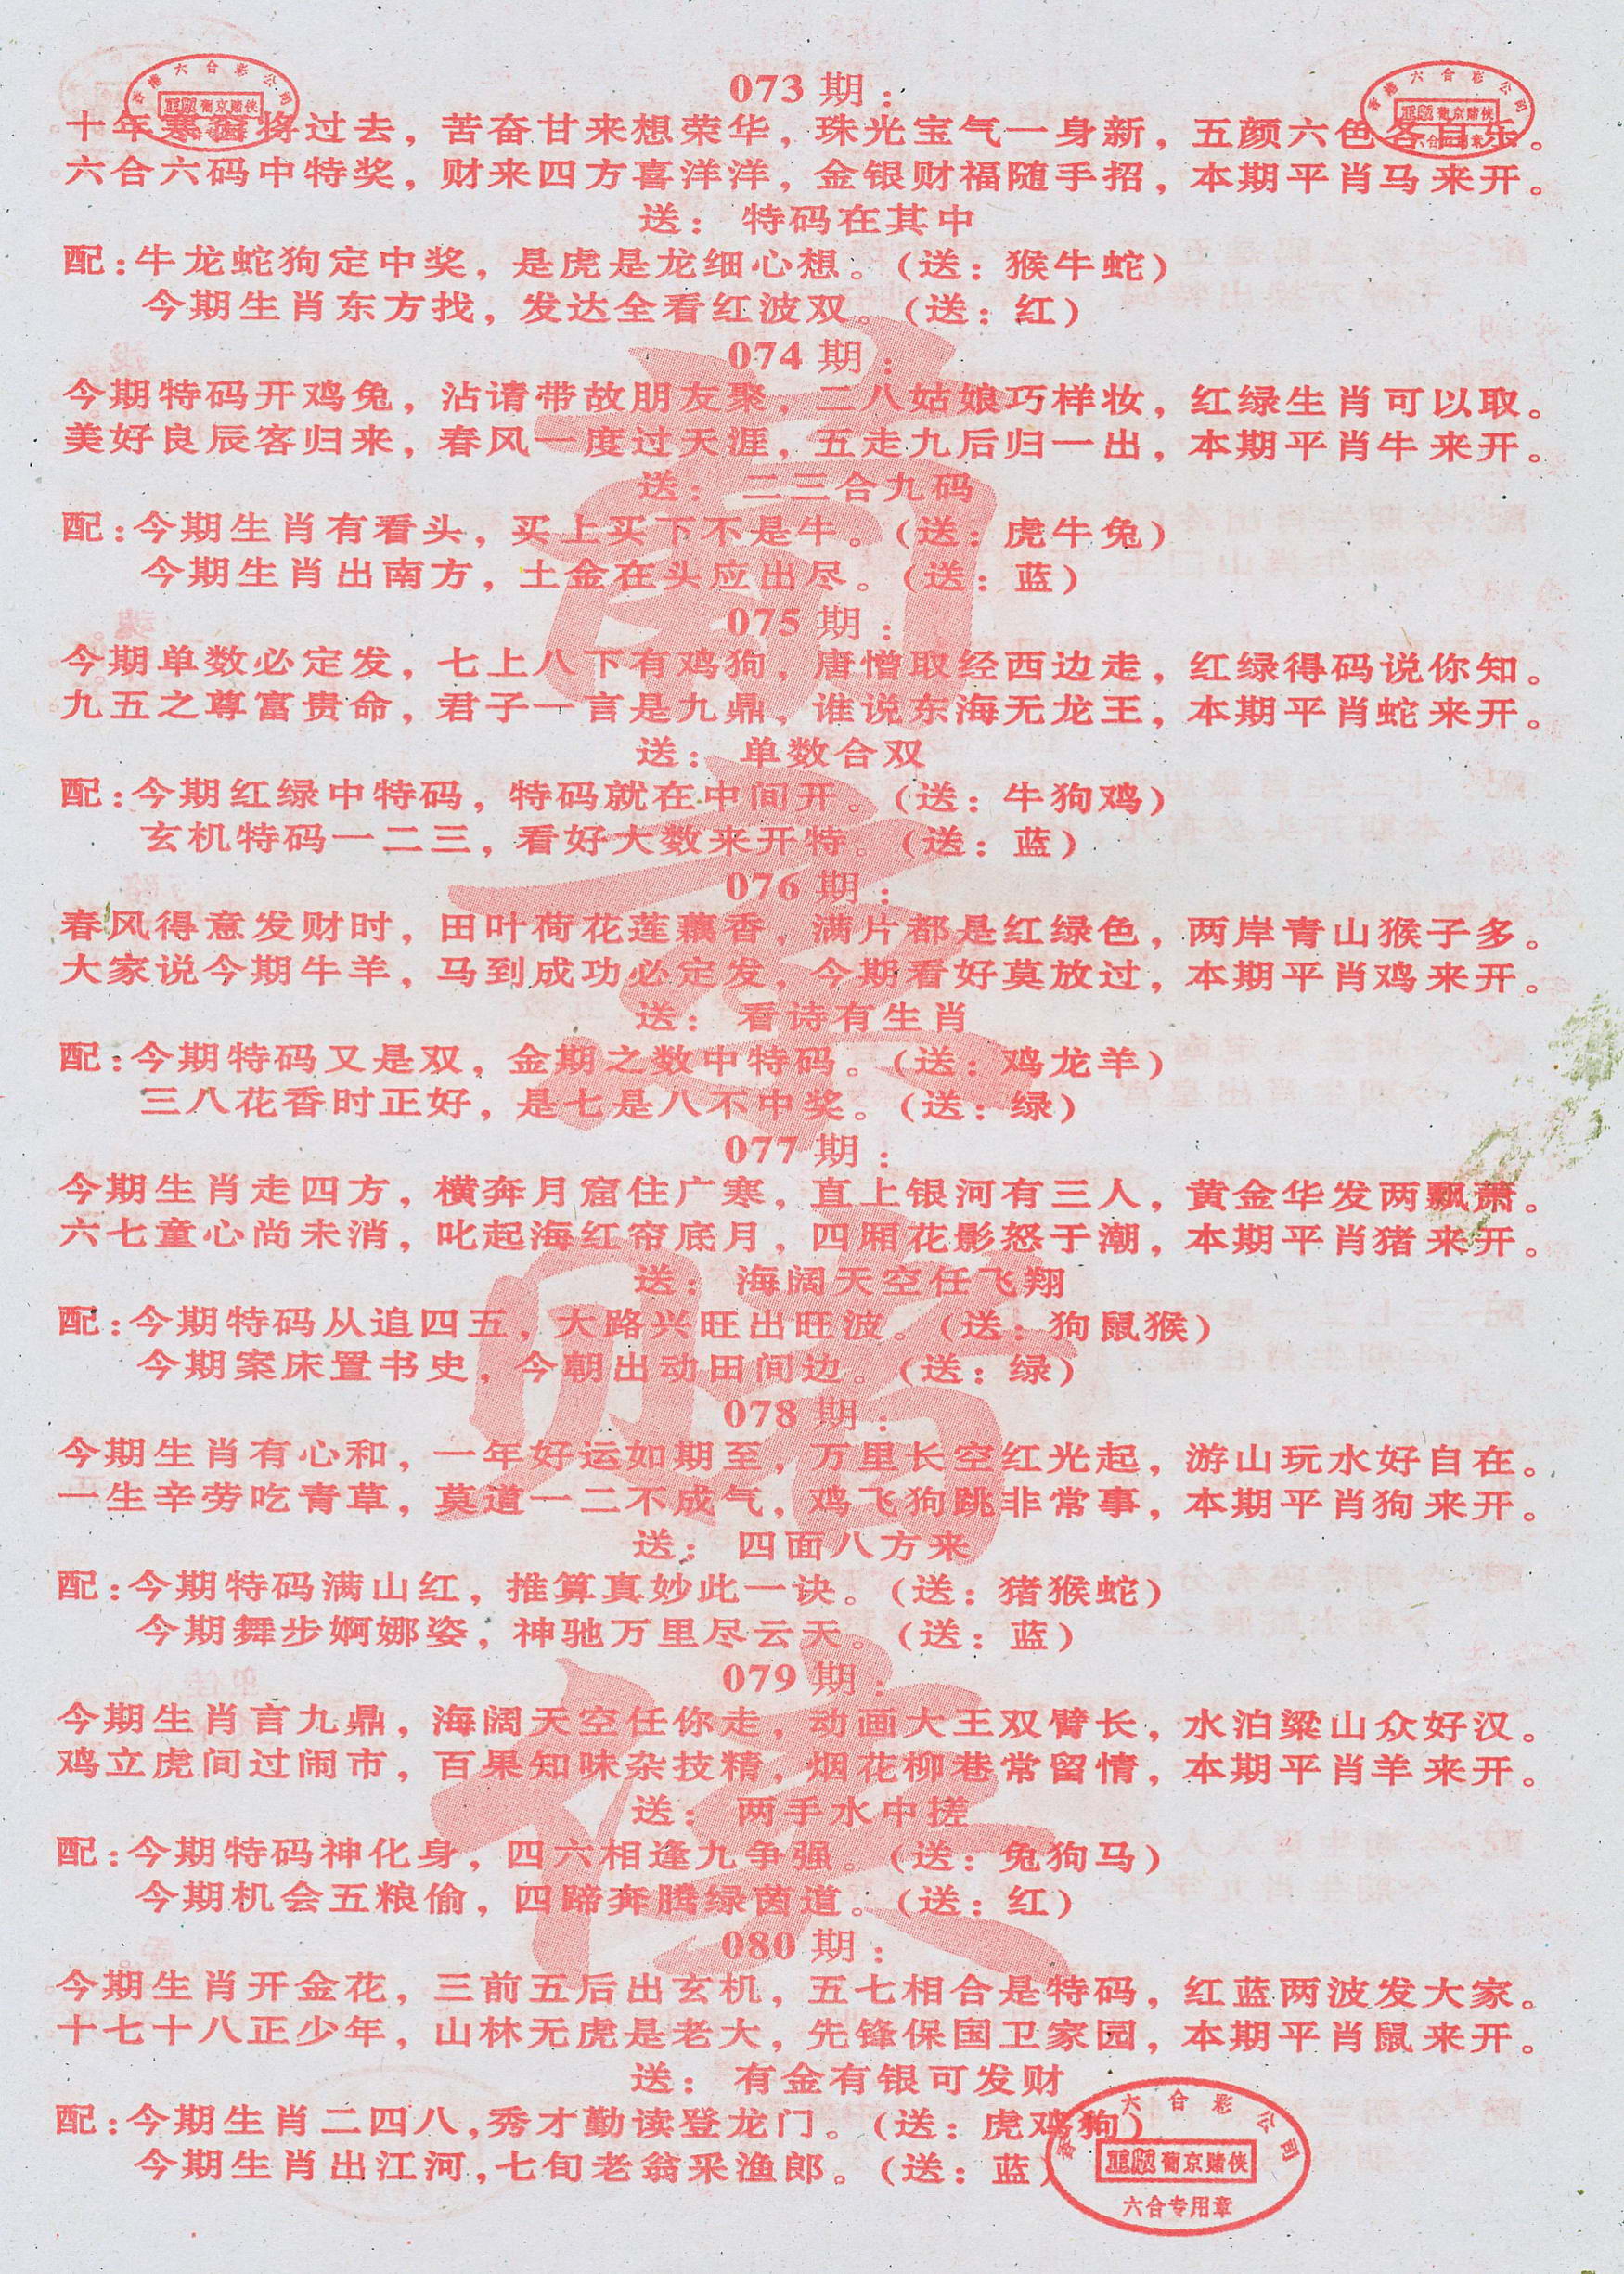 073期：
十年寒窗将过去，苦奋甘来想荣华，珠光宝气一身新，五颜六色各自乐。
六合六码中特奖，财来四方喜洋洋，金银财福随手招，本期平肖马来开。
送：特码在其中
配：牛龙蛇狗定中奖，是虎是龙细心想。（送：猴牛蛇）
今期生肖东方找，发达全看红波双。（送：红）
074期：
今期特码开鸡兔，沾请带故朋友聚，二八姑娘巧样妆，红绿生肖可以取。
美好良辰客归来，春风一度过天涯，五走九后归一出，本期平肖牛来开。
送：二三合九码
配：今期生肖有看头，买上买下不是牛。（送：虎牛兔）
今期生肖出南方，土金在头应出尽。（送：蓝）
075期：
今期单数必定发，七上八下有鸡狗，唐憎取经西边走，红绿得码说你知。
九五之尊富贵命，君子一言是九鼎，谁说东海无龙王，本期平肖蛇来开。
送：单数合双
配：今期红绿中特码，特码就在中间开。（送：牛狗鸡）
玄机特码一二三，看好大数来开特。（送：蓝）
076期：
春风得意发财时，田叶荷花莲藕香，满片都是红绿色，两岸青山猴子多。
大家说今期牛羊，马到成功必定发，今期看好莫放过，本期平肖鸡来开。
送：看诗有生肖
配：今期特码又是双，金期之数中特码。（送：鸡龙羊）
三八花香时正好，是七是八不中奖。（送：绿）
077期：
今期生肖走四方，横奔月窟住广寒，直上银河有三人，黄金华发两飘萧。
六七童心尚未消，叱起海红帘底月，四厢花影怒于潮，本期平肖猪来开。
送：海阔天空任飞翔
配：今期特码从追四五，大路兴旺出旺波。（送：狗鼠猴）
今期案床置书史，今朝出动田间边。（送：绿）
078期：
今期生肖有心和，一年好运如期至，万里长空红光起，游山玩水好自在。
一生辛劳吃青草，莫道一二不成气，鸡飞狗跳非常事，本期平肖狗来开。
送：四面八方来
配：今期特码满山红，推算真妙此一诀。（送：猪猴蛇）
今期舞步婀娜姿，神驰万里尽云天。（送：蓝）
079期：
今期生肖言九鼎，海阔天空任你走，动画大王双臂长，水泊梁山众好汉。
鸡立虎间过闹市，百果知味杂技精，烟花柳巷常留情，本期平肖羊来开。
送：两手水中搓
配：今期特码神化身，四六相逢九争强。（送：兔狗马）
今期机会五粮偷，四蹄奔腾绿茵道。（送：红）
080期：
今期生肖开金花，三前五后出玄机，五七相合是特码，红蓝两波发大家。
十七十八正少年，山林无虎是老大，先锋保国卫家园，本期平肖鼠来开。
送：有金有银可发财
配：今期生肖二四八，秀才勤读登龙门。（送：虎鸡狗）
今期生肖出江河，七旬老翁采渔郎。（送：蓝）
香港六合彩公司
正版葡京赌侠
六合专用章